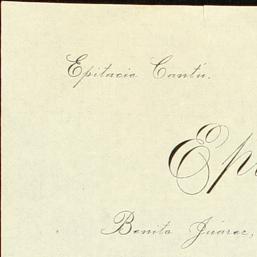 Epitacia Cantú.
Ep
Benito Juárez,